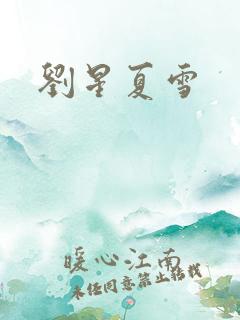 劉星夏雪
暖心江南
未经同意禁止搭载